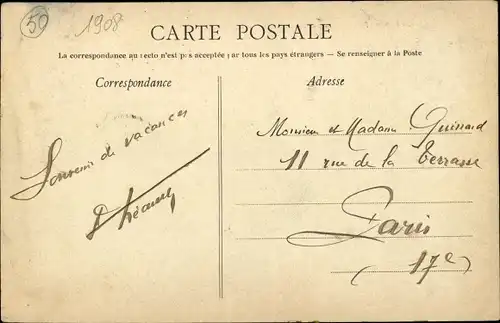 50
1908
CARTE POSTALE
La correspondance au recto n'est pas acceptée par tous les pays étrangers — Se renseigner à la Poste
Correspondance
Adresse
Souvenir de vacances
Monsieur et Madame Guinard
11 rue de la Terrasse
Paris
(17e)